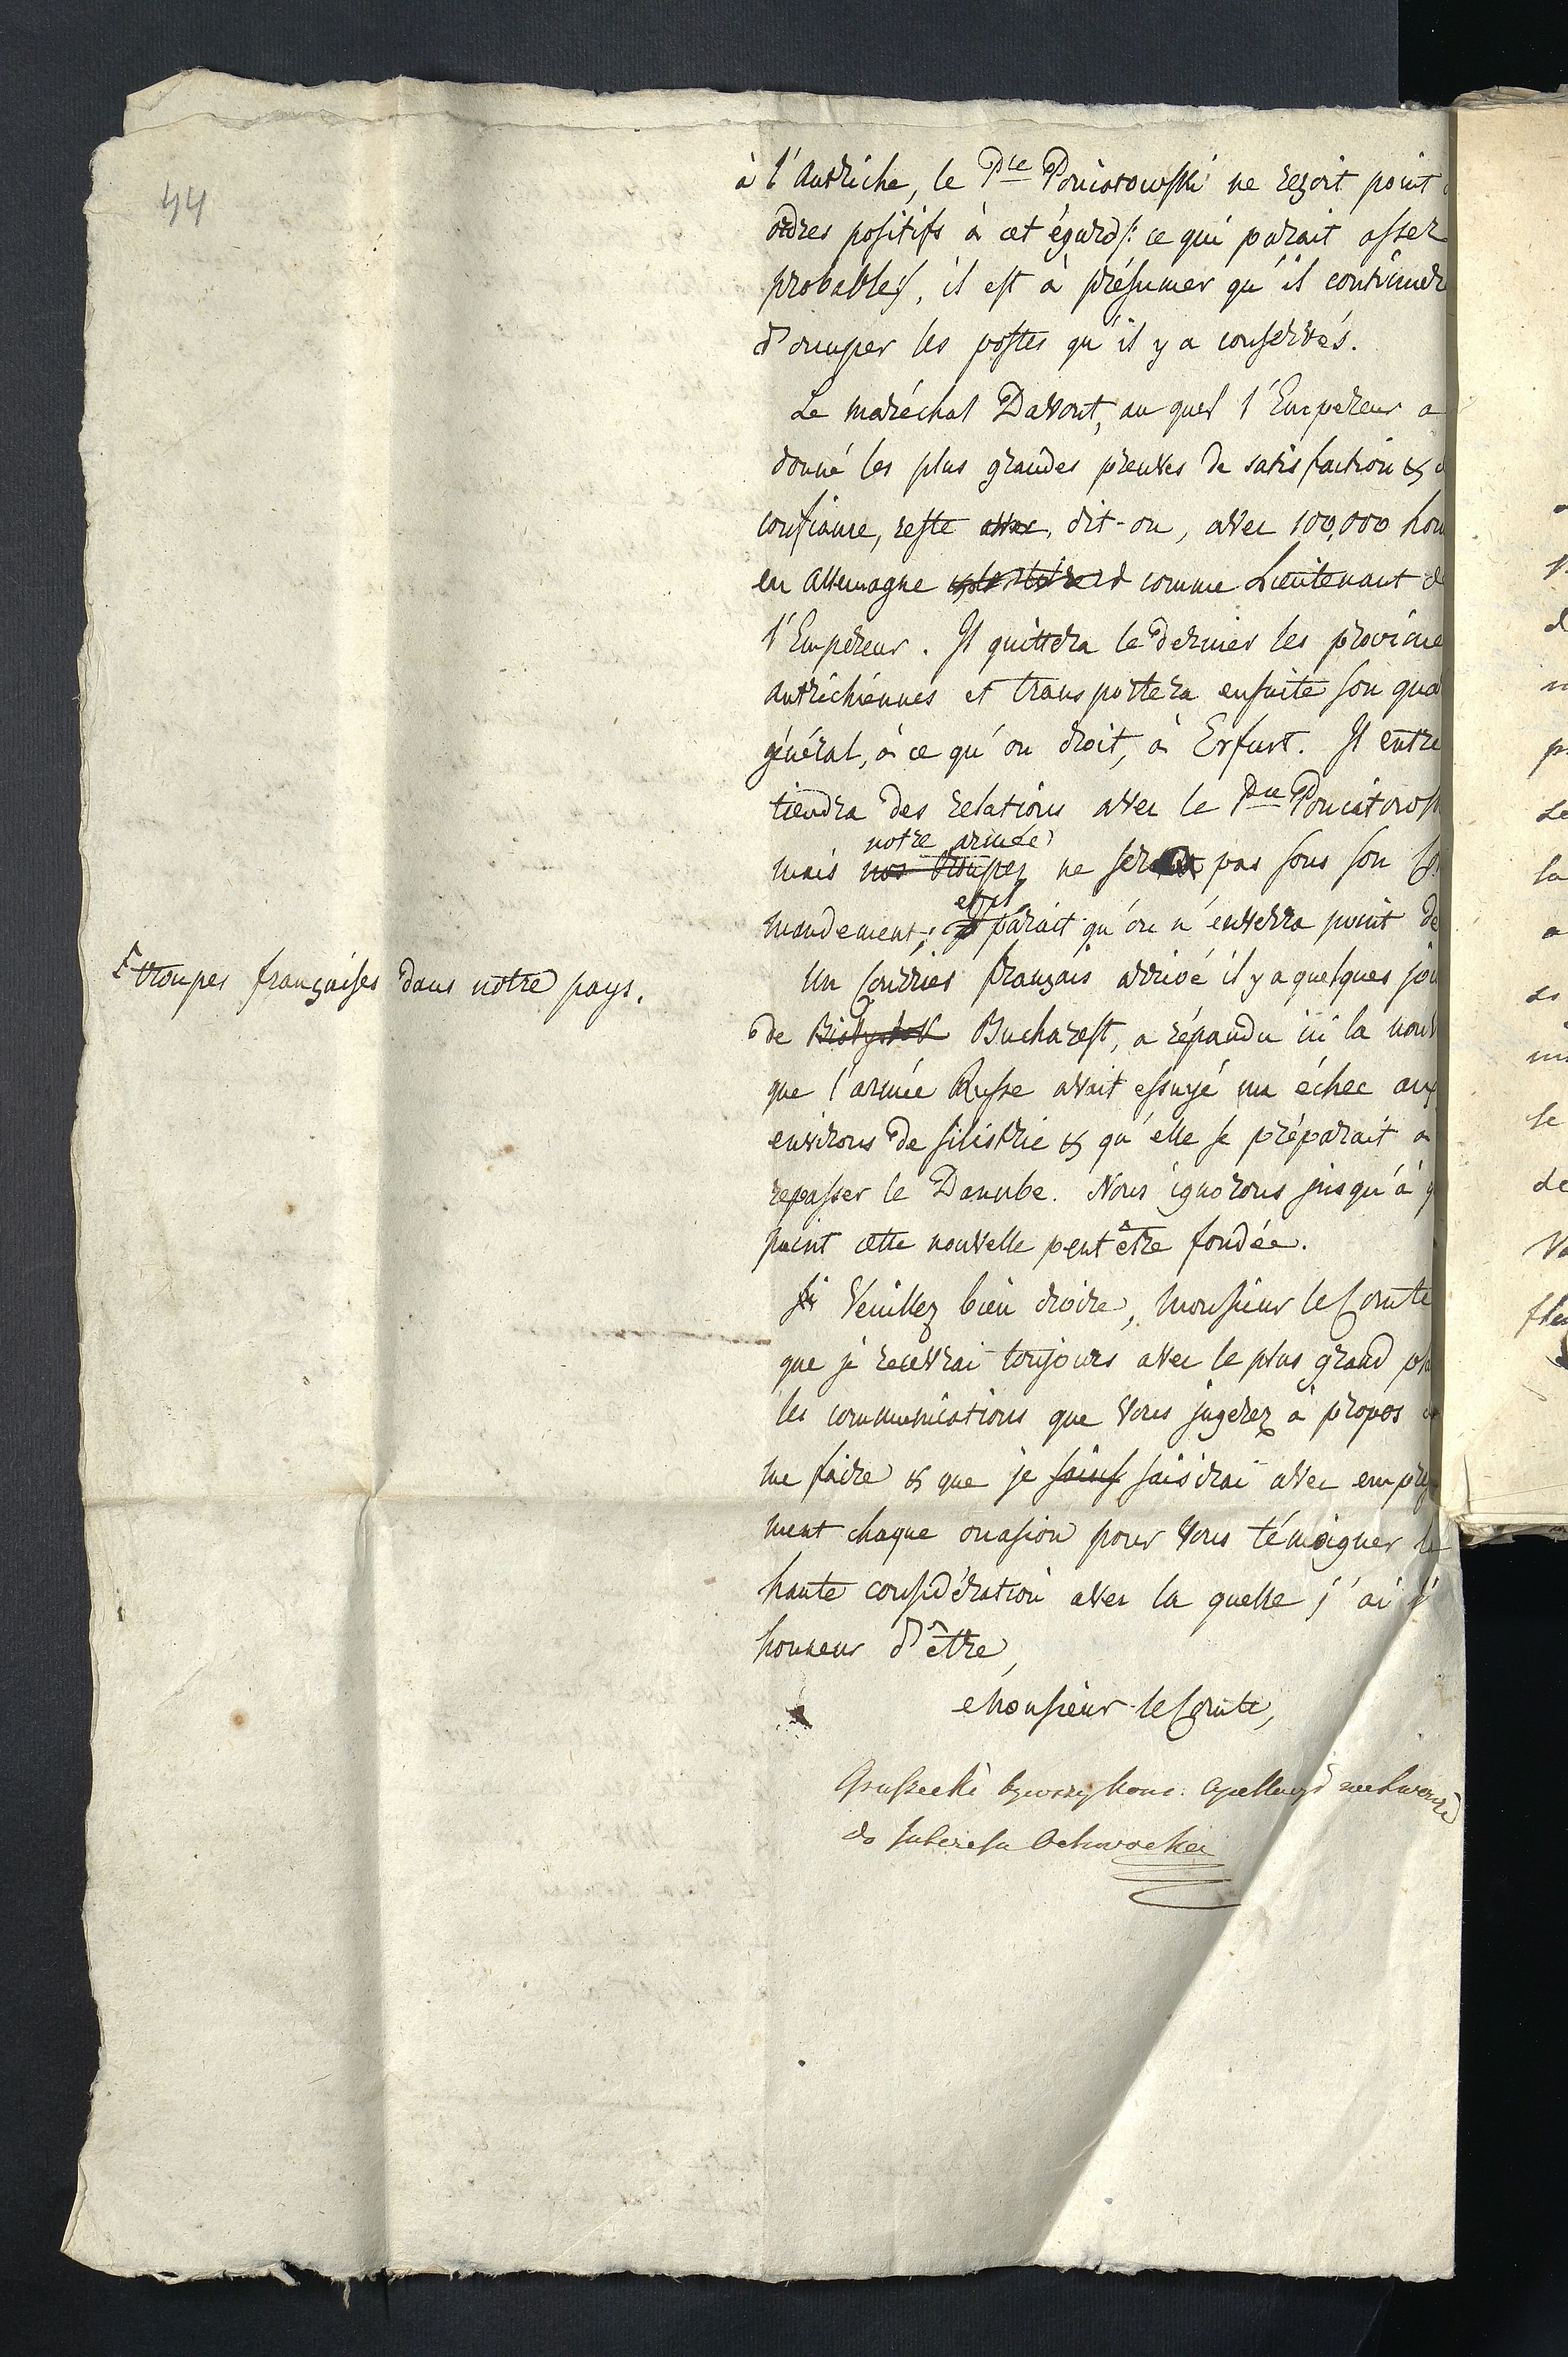 44
à l'Autriche, le Pce Poniatowski ne reçoit point
ordres positifs à cet égard /: ce qui parait assez
probable :/, il est à présumer qu'il continuer
d'occuper les postes qu'il y a conservés.
Le maréchal Davout, au quel l'Empereur a
donné les plus grandes preuves de satisfaction &
confiance, reste avec, dit-on, avec 100,000 hom
en Allemagne comme Lieutenant de
l'Empereur. Il quittera le dernier les province
autrichiennes et transportera ensuite son qua
général, à ce qu'on croit, à Erfurt. Il entre
tiendra des relations avec le Pce Poniatowsk
notre armée
mais nos troupes ne sera pas sous son Co
et il
mandement; Il parait qu'on n'enverra point de
F troupes françaises dans notre pays.
Un Courrier français arrivé il y a quelques jou
de Bialystok Bucharest, a répandu ici la nouv
que l'armée Russe avait essuyé un échec aux
environs de Silistrie & qu'elle se préparait à
repasser le Danube. Nous ignorons jusqu'à q
point cette nouvelle peut être fondée.
Veuillez bien croire, Monsieur le Comte
que je recevrai toujours avec le plus grand pla
les communications que Vous jugerez à propos
me faire & que je saisirai avec empres
ment chaque occasion pour Vous témoigner la
haute considération avec la quelle j'ai l'
honneur d'être,
Monsieur le Comte,
do